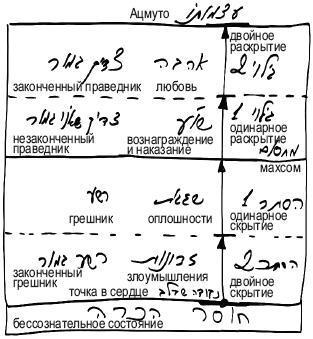 Ацмуто עצמותו
двойное
раскрытие
צדיק גמור אהבה גילוי 2
законченный праведник любовь
צדיק שאינו גמור שו"ע גילוי 1
незаконченный
праведник
вознаграждение
и наказание
одинарное
раскрытие
מחסום
махсом
רשע שגגות הסתר 1
грешник оплошности одинарное
скрытие
רשע גמור זדונות הסתר 2
законченный
грешник
злоумышления
двойное
скрытие
точка в сердце נקודה שבלב
חוסר הכרה
бессознательное состояние